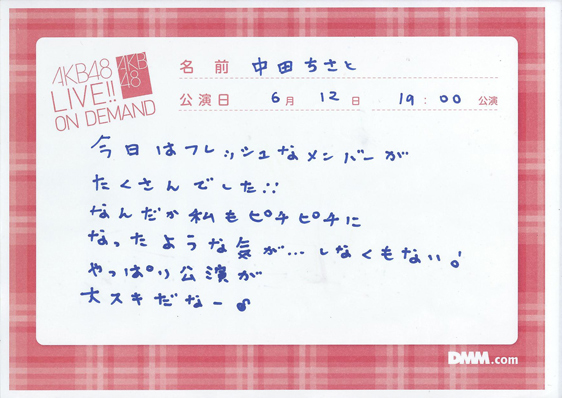 AKB48
LIVE!!
ON DEMAND
AKB
48
名前 中田ちさと
公演日 6月 12日 19:00 公演
今日はフレッシュなメンバーが
たくさんでした!!
なんだか私もピチピチに
なったような気が…しなくもない!
やっぱり公演が
大スキだなー♪
DMM.com